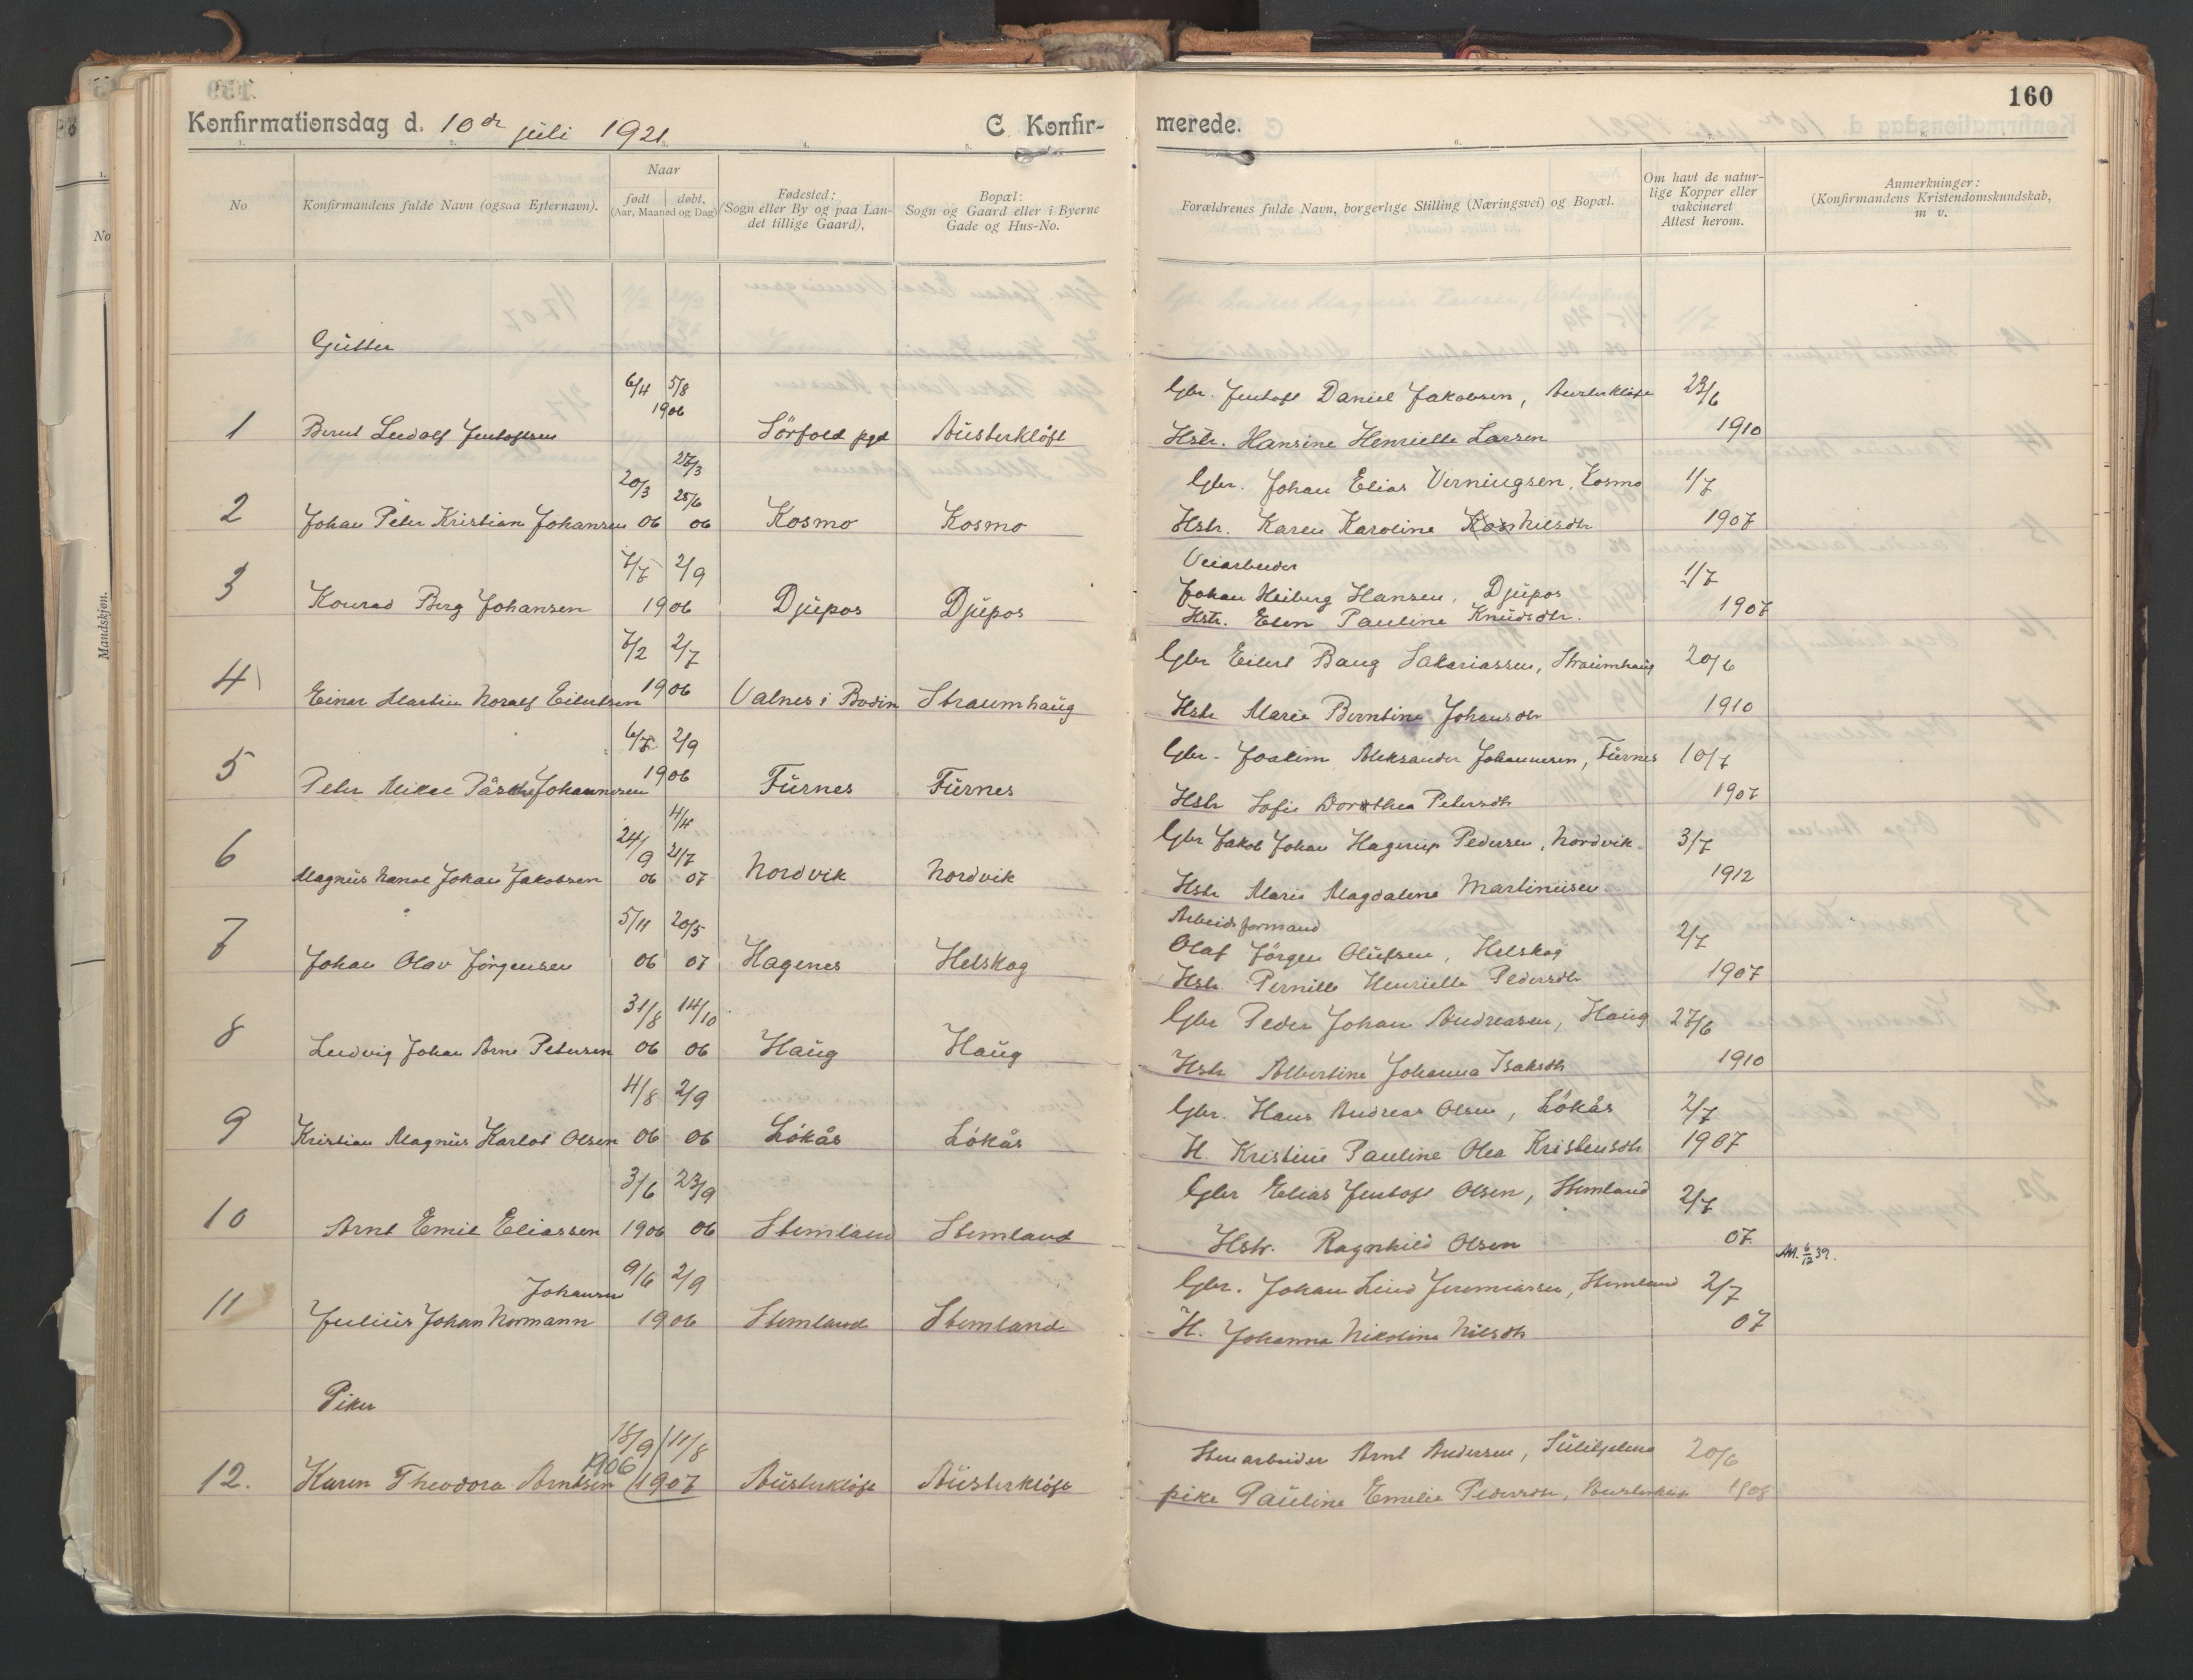 160
Konfirmationsdag d. 10de juli 1921. C. Konfirmerede.
No
Konfirmandens fulde Navn (ogsaa Efternavn).
Naar
født døbt,
(Aar, Maaned og Dag)
Fødested:
(Sogn eller By og paa Lan-
det tillige Gaard),
Bopæl:
Sogn og Gaard eller i Byerne
Gade og Hus-No.
Forældrenes fulde Navn, borgerlige Stilling (Næringsvei) og Bopæl.
Om havt de natur-
lige Kopper eller
vakcineret
Attest herom.
Anmerkninger:
(Konfirmandens Kristendomskundskab,
m v.
No
Mandskjøn.
Gutter
6/4 5/8 Gbr. Jentoft Daniel Jakobsen, Austerkløft 23/6
1 Bernt Ludolf Jentoftsen 1906 Sörfold pgd Austerkløft Hstr. Hansine Henriette Larsen 1910
20/3 27/3 25/6 Gbr. Johan Elias Verningsen, Kosmo 1/7
2 Johan Peter Kristian Johansen 06 06 Kosmo Kosmo Hstr. Karen Karoline Nilsdtr 1907
7/7 2/9 Veiarbeider
Johan Heiberg Hansen, Djupos 1/7
3 Konrad Berg Johansen 1906 Djupos Djupos Hstr. Elen Pauline Knudsdtr. 1907
7/2 2/7 Gbr Eilert Bang Sakariassen, Straumhaug 20/6
4 Einar Martin Noralf Eilertsen 1906 Valnes i Bodin Straumhaug Hstr Marie Berntine Johansdtr 1910
6/7 2/9 Gbr. Joakim Aleksander Johannesen, Furnes 10/7
5 Peter Mikal Johannesen 1906 Furnes Furnes Hstr Sofie Dorothea Petersdtr 1907
24/9 4/4 21/7 Gbr Jakob Johan Hagerup Pedersen, Nordvik 3/7
6 Magnus Johan Jakobsen 06 07 Nordvik Nordvik Hstr Marie Magdalene Martinusen 1912
5/11 20/5 Arbeidsformand
Olaf Jörgen Olufsen, Helskog 2/7
7 Johan Olav Jörgensen 06 07 Hagenes Helskog Hstr. Pernille Henriette Pedersdtr 1907
31/8 14/10 Gbr Peder Johan Andreasen, Haug 27/6
8 Ludvig Johan Arne Petersen 06 06 Haug Haug Hstr Albertine Johanna Isaksdtr 1910
4/8 2/9 Gbr. Hans Andreas Olsen, Lökås 2/7
9 Kristian Magnus Karlot Olsen 06 06 Lökås Lökås H. Kristine Pauline Olea Kristensdtr 1907
3/6 23/9 Gbr Elias Jentoft Olsen, Stemland 2/7
10 Arnt Emil Eliassen 1906 06 Stemland Stemland Hstr. Ragnhild Olsen 07
Att. 6/12 39.
Johansen 9/6 2/9 Gbr. Johan Lind Jeremiassen, Stemland 2/7
11 Julius Johan Normann 1906 Stemland Stemland H. Johanna Nikoline Nilsdtr 07
Piker
18/9 11/8 Stenarbeider Arnt Andersen, Sulitjelma 20/6
1906
12. Karen Theodora Arntsen 1907 Austerkløft Austerkløft pike Pauline Emelie Pedersdtr, Austerkløft 1908